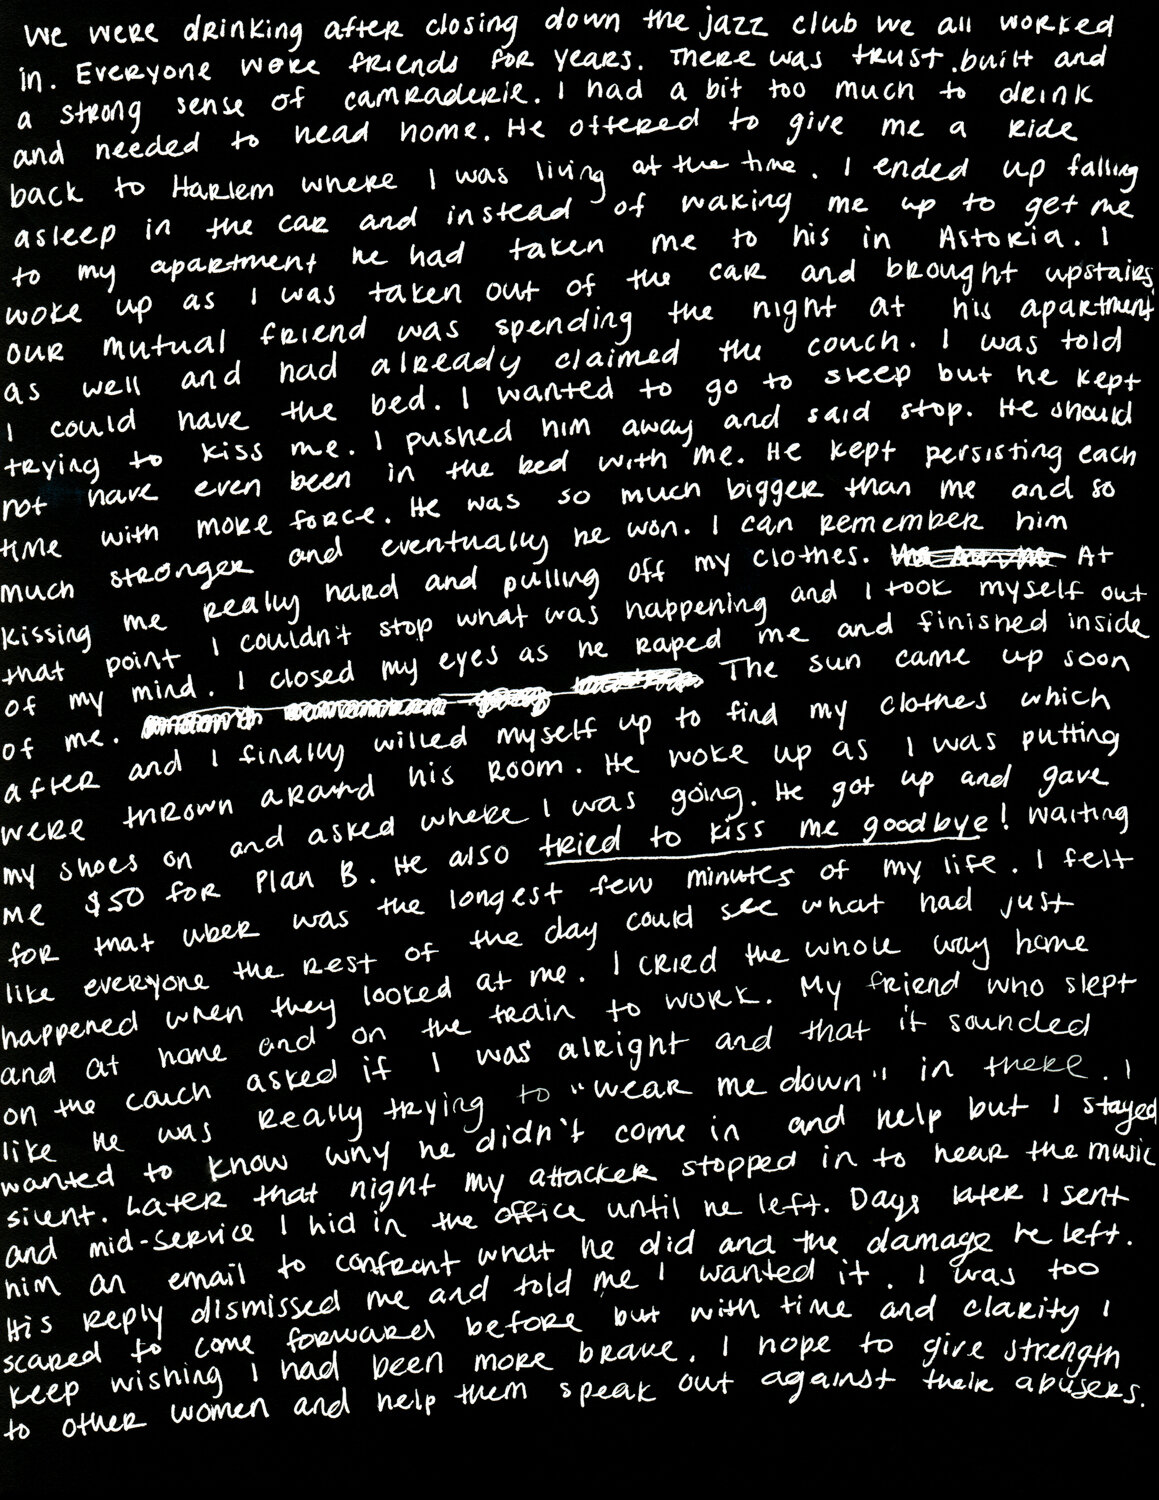 We were drinking after closing down the jazz club we all worked
in. Everyone were friends for years. There was trust built and
a strong sense of camraderie. I had a bit too much to drink
and needed to head home. He offered to give me a ride
back to Harlem where I was living at the time. I ended up falling
asleep in the car and instead of waking me up to get me
to my apartment he had taken me to his in Astoria. I
woke up as I was taken out of the car and brought upstairs.
our mutual friend was spending the night at his apartment
as well and had already claimed the couch. I was told
I could have the bed. I wanted to go to sleep but he kept
trying to kiss me. I pushed him away and said stop. He should
not have even been in the bed with me. He kept persisting each
time with more force. He was so much bigger than me and so
much stronger and eventually he won. I can remember him
kissing me really hard and pulling off my clothes. At
that point I couldn't stop what was happening and I took myself out
of my mind. I closed my eyes as he raped me and finished inside
of me. The sun came up soon
after and I finally willed myself up to find my clothes which
were thrown around his room. He woke up as I was putting
my shoes on and asked where I was going. He got up and gave
me $50 for Plan B. He also tried to kiss me goodbye! Waiting
for that uber was the longest few minutes of my life. I felt
like everyone the rest of the day could see what had just
happened when they looked at me. I cried the whole way home
and at home and on the train to work. My friend who slept
on the couch asked if I was alright and that it sounded
like he was really trying to "wear me down" in there. I
wanted to know why he didn't come in and help but I stayed
silent. Later that night my attacker stopped in to hear the music
and mid-service I hid in the office until he left. Days later I sent
him an email to confront what he did and the damage he left.
His reply dismissed me and told me I wanted it. I was too
scared to come forward before but with time and clarity I
keep wishing I had been more brave. I hope to give strength
to other women and help them speak out against their abusers.